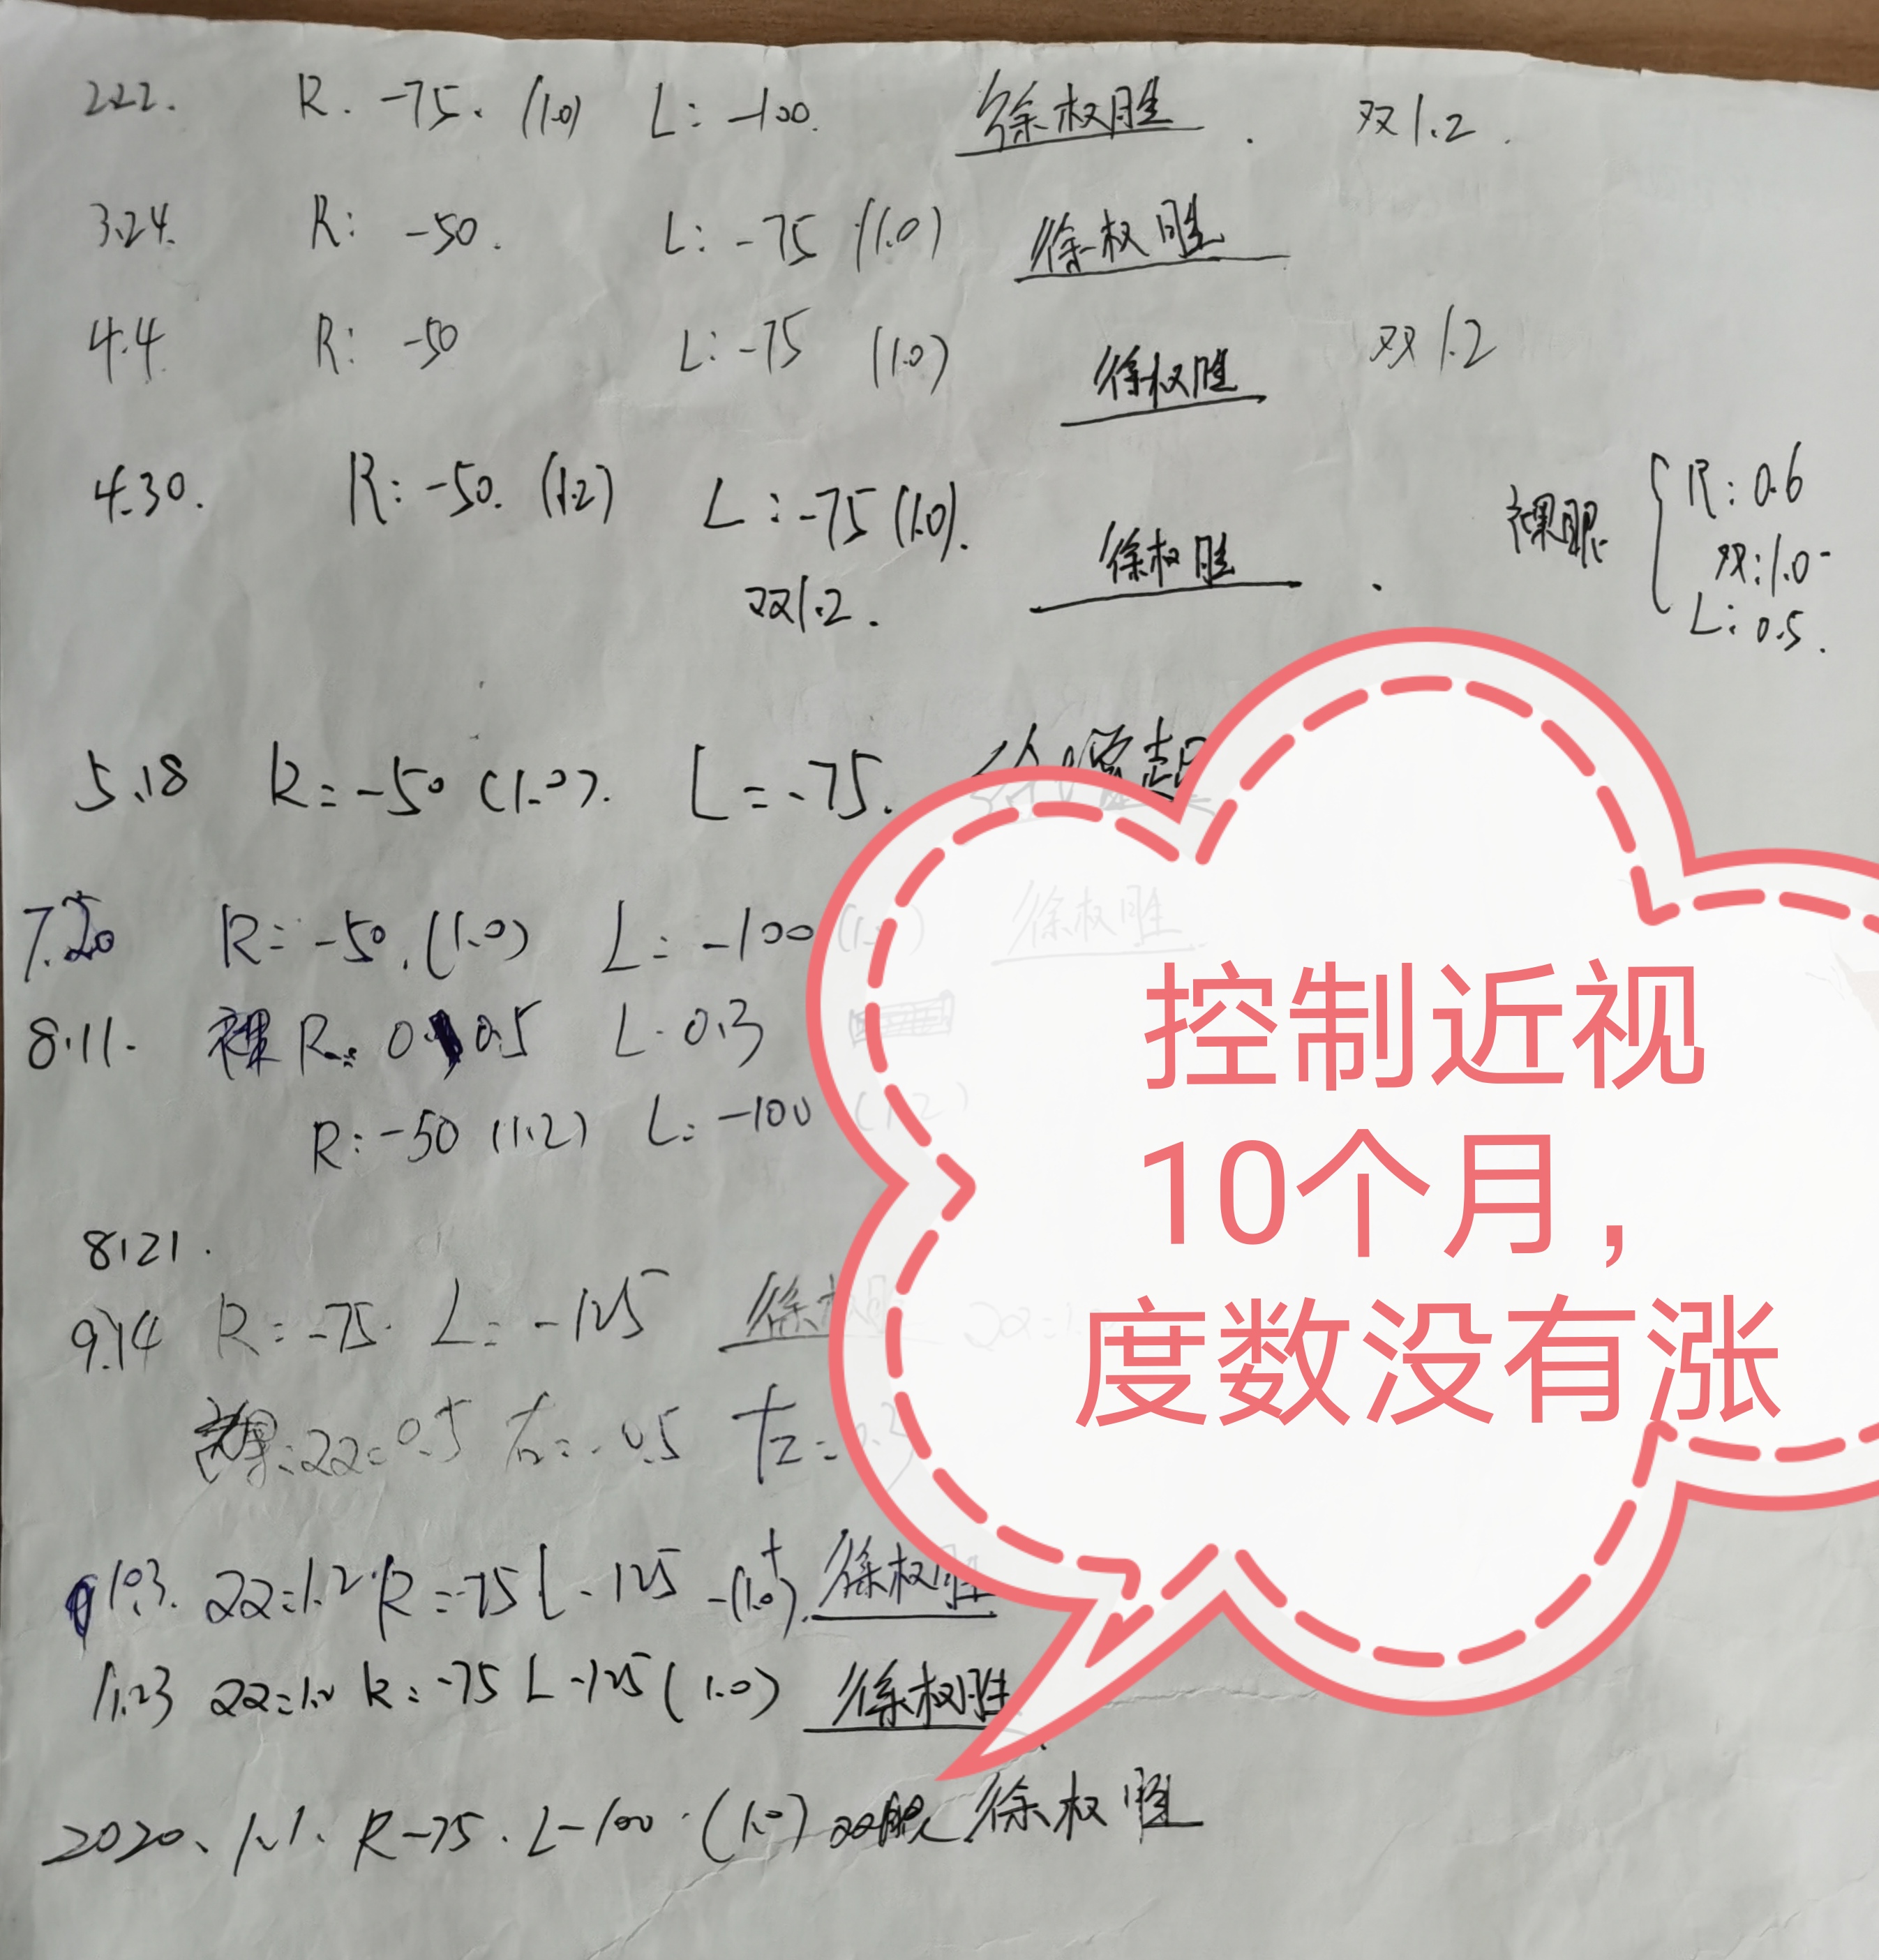 2.22. R. -75. (1.0) L: -100. 徐权胜. 双1.2.
3.24. R: -50. L: -75 (1.0) 徐权胜
4.4 R: -50 L: -75 (1.0) 徐权胜 双1.2
4.30. R: -50. (1.2) L: -75 (1.0). 徐权胜.
双1.2.
裸眼 R: 0.6
双: 1.0-
L: 0.5.
5.18 R=-50 (1.0). L=-75.
7.20 R=-50. (1.0) L=-100 徐权胜
8.11. 裸 R: 0.5 L. 0.3
R: -50 (1.2) L: -100 (1.2)
8.21.
9.14 R=-75. L: -125 徐权胜
裸: 双=0.5 右=.0.5 左=0.3
10.3. 双=1.2. R=-75 L-125 -(1.0)+. 徐权胜
11.23 双=1.2 R: -75 L-125 (1.0) 徐权胜
2020. 1.1. R-75. L-100. (1.0) 双眼 徐权胜
控制近视
10个月，
度数没有涨